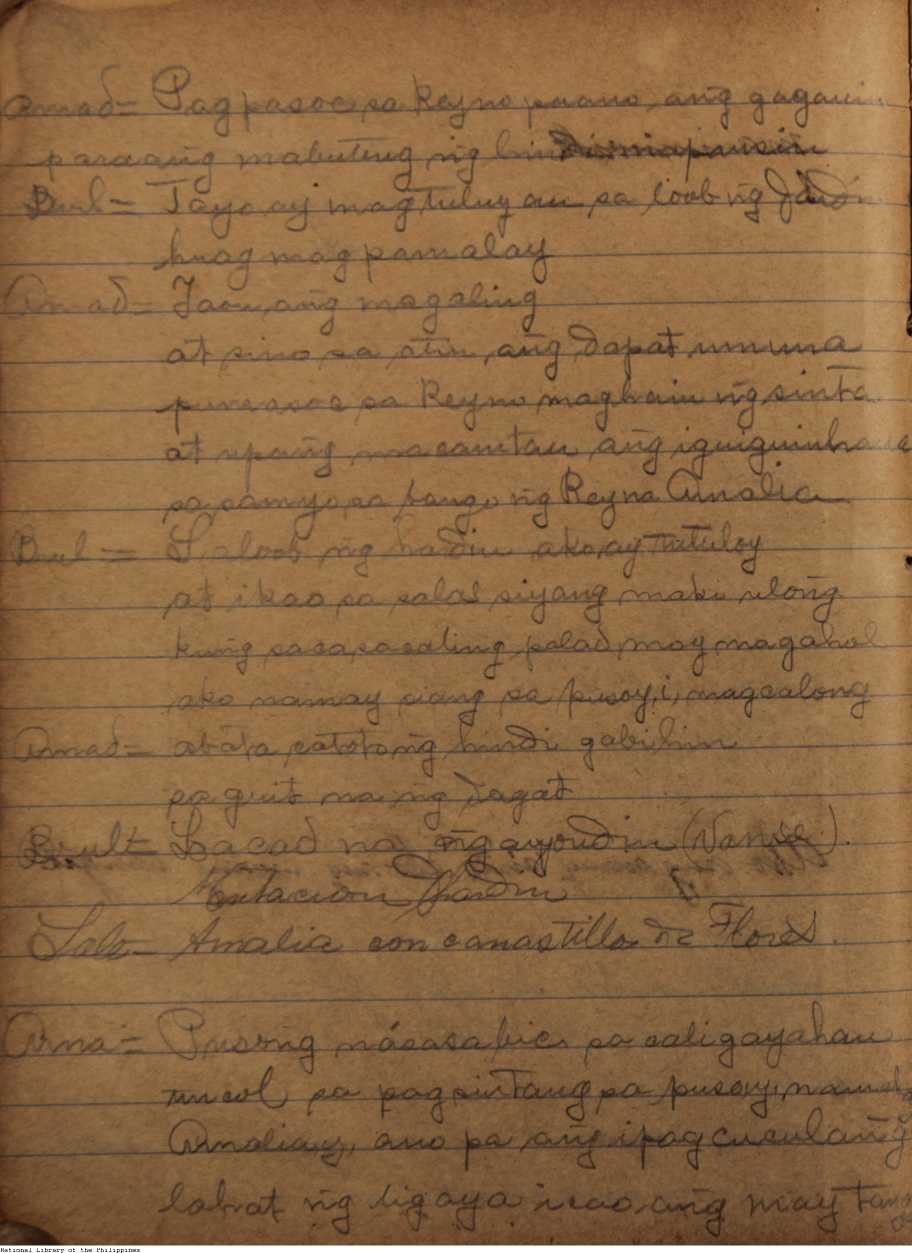 Amad= Pag pasoc sa Reyno paano ang gagawin
para ang mabuting ng hindi
Bul= Tayo ay magtuluyan sa loob ng Jardin
huag mag pamalay
Amad= Iaon ang magaling
at sino sa atin ang dapat umuna
pumasoc sa Reyno maghain ng sinta
at upang macamtan ang iguiguinhaua
sa samyo sa bango ng Reyna Amalia
Bul= Saloob ng hardin ako ay tutuloy
at ikao sa salas siyang maki ulong
kung sacasacaling palad may magahol
ako namay siang sa pusoy,i, magcalong
Amad= abáta catotong hindi gabihin
sa guit na ng dagat
Bult= Lacad na ngayondin (Vanse).
Mutacion Jardin
Sale= Amalia con canastillo de Flores.
Ama= Pusong násasabic sa caligayahan
tuncol sa pagsintang sa pusoy,
Amaliang, ano pa ang ipag cuculang̃
lahat ng ligaya icao ang may
National Library of the Philippines